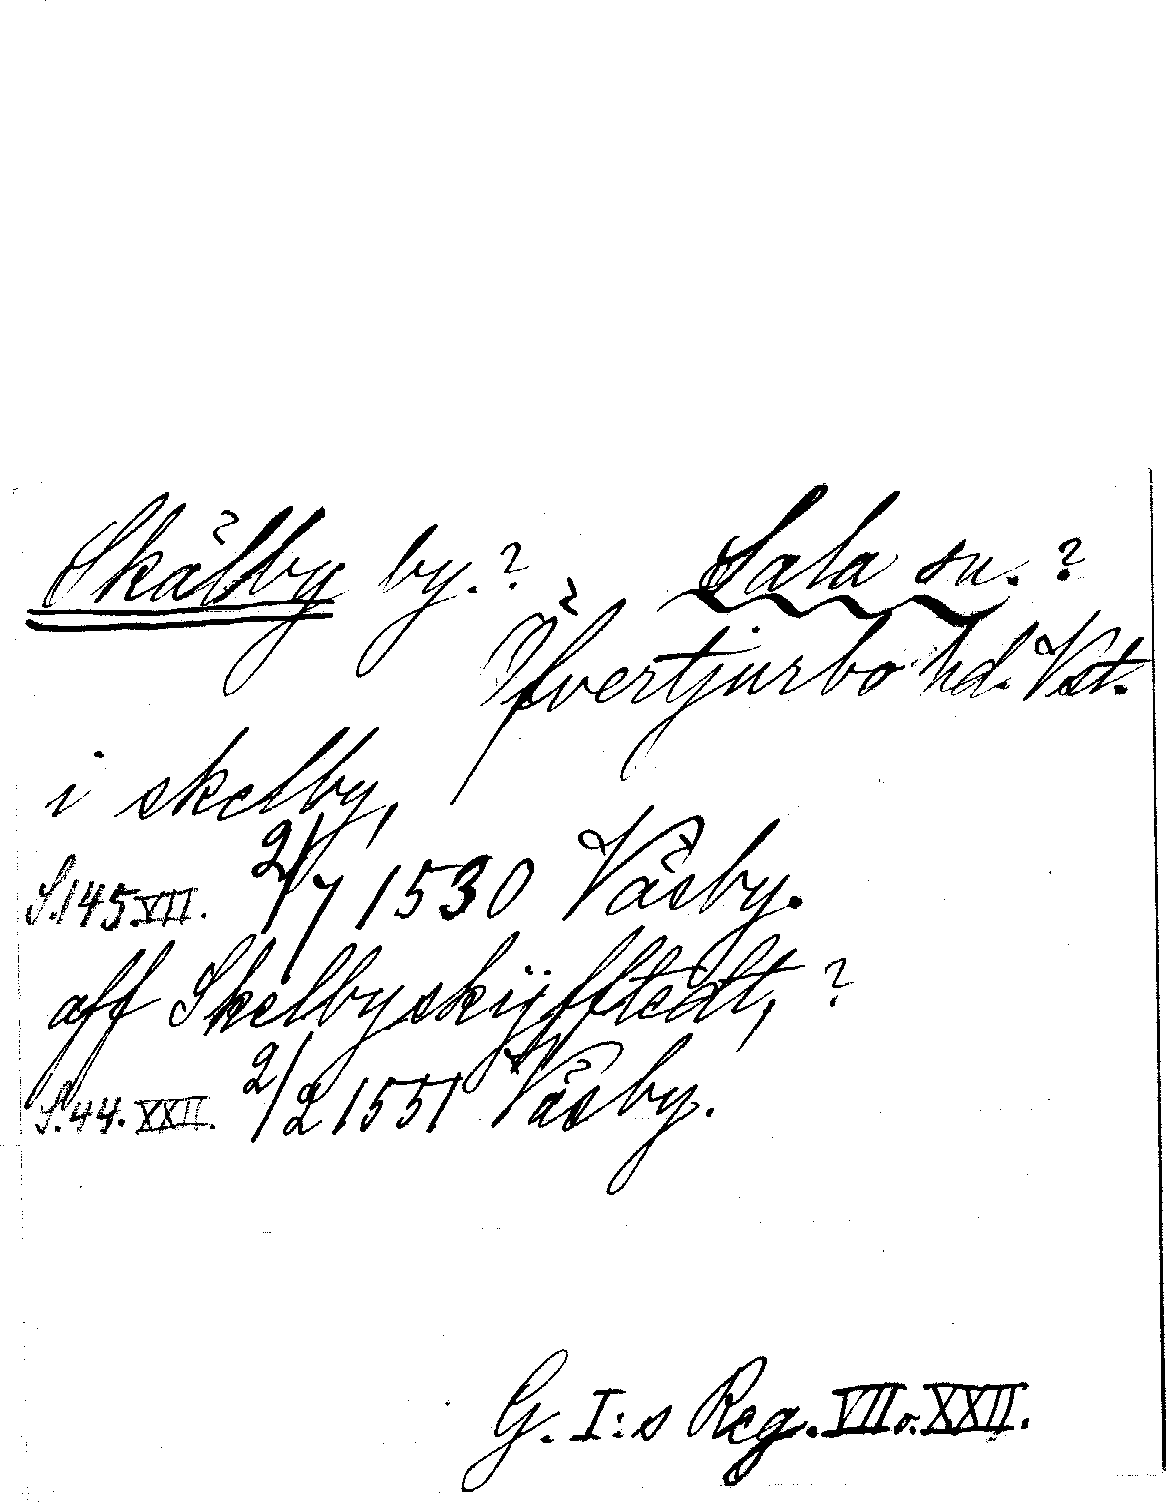 Skälby by.? Sala sn.?
Öfvertjurbo hd. Vst.
i skelby,
S.145.VII. 2/7 1530 Väsby.
aff Skelbyskÿfftedt,?
S.44.XXII. 2/2 1551 Väsby.
G. I:s Reg. VII o. XXII.